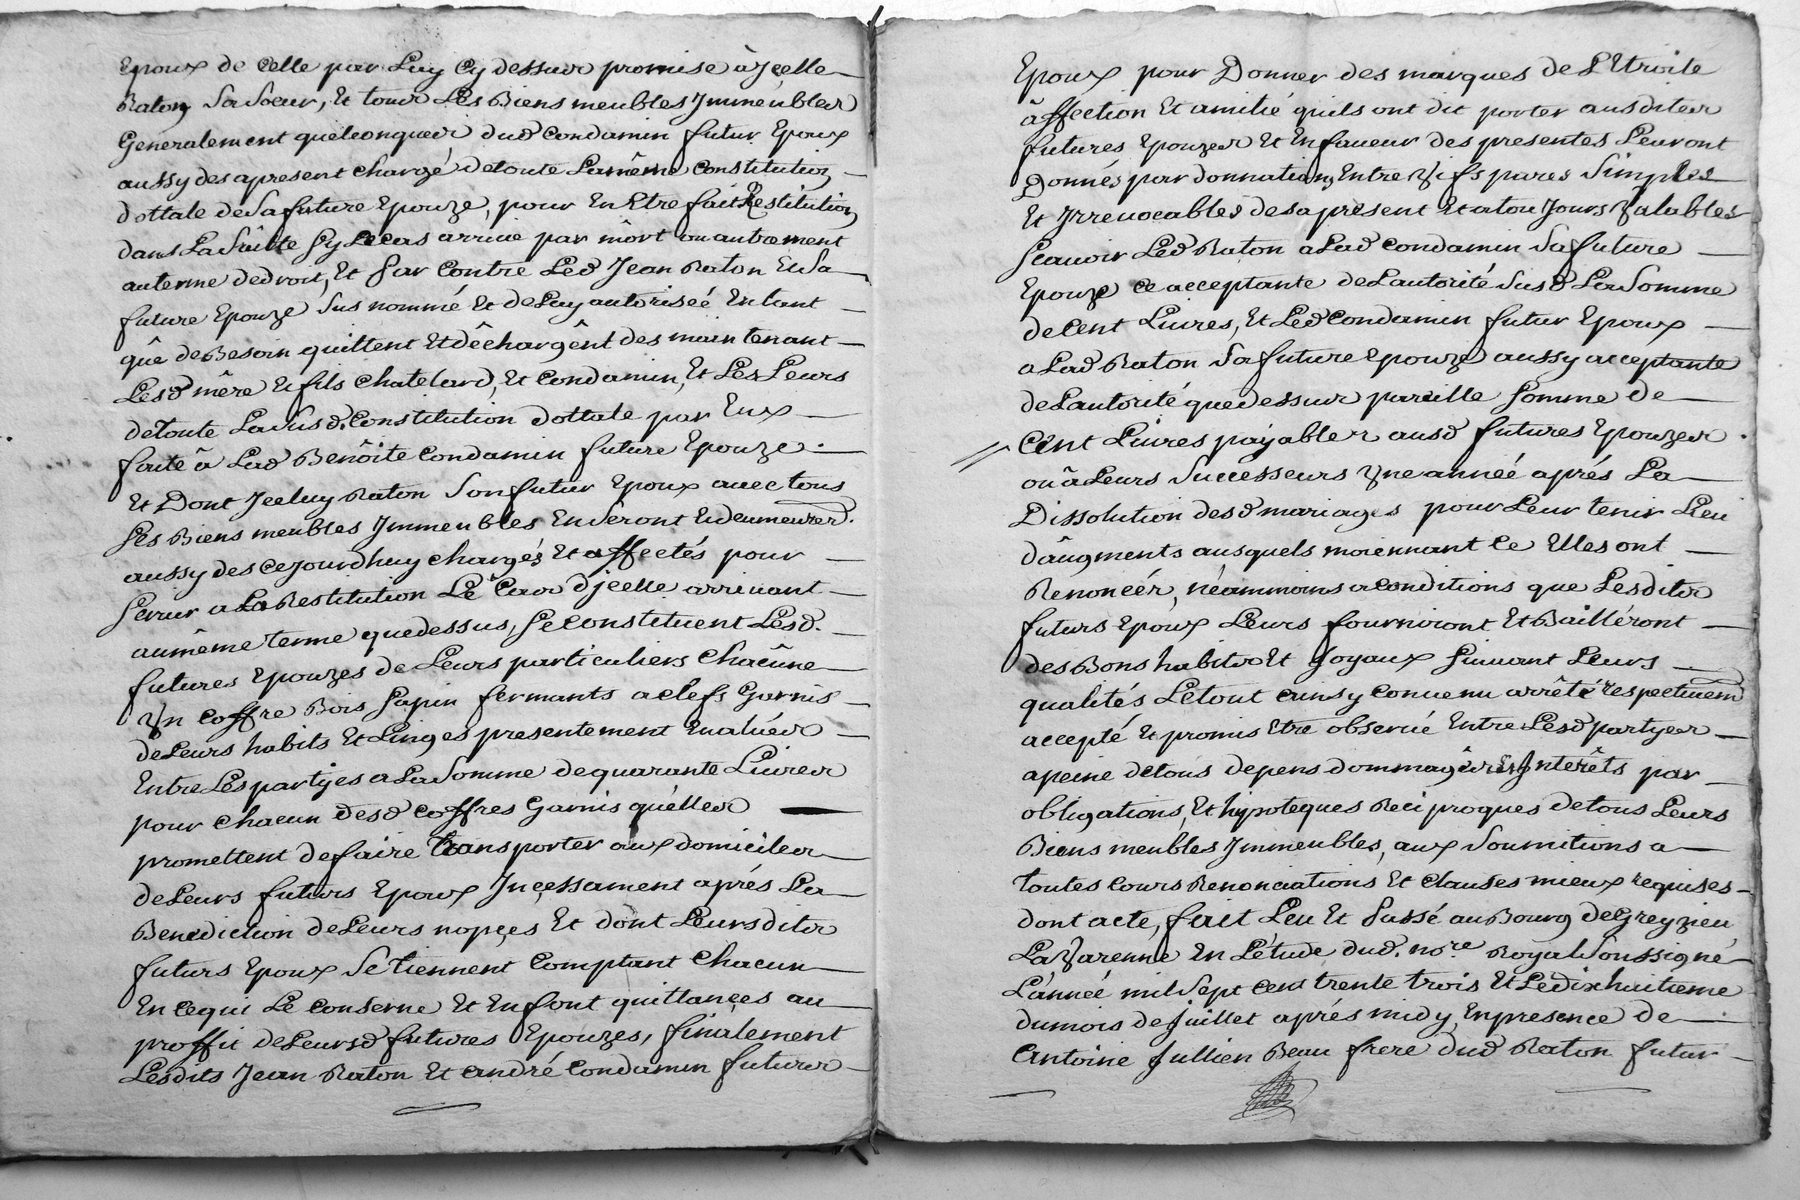 Epoux de celle par Luy Cy dessus promise à Jcelle
Raton Sa Soeur, Et tous Les Biens meubles Jmmeubles
Generalement quelconques dud Condamin futur Epoux
aussy des apresent chargé de toute La même Constitution
dottale de Sa future Epouze, pour En Etre fait Restitution
dans La Suitte Sy Le cas arrive par môrt ou autrement
au terme de droit, Et Par Contre Led Jean Raton Et Sa
future Epouze Sus nommé Et de Luy autoriseé En tant
quê de Besoin quittent Et dêchargênt des maintenant
Lesd mêre Et fils Chatelard, Et Condamin, Et Les Leurs
de Toute La Susd. Constitution dottale par Eux
faite â Lad Benôite Condamin future Epouze.
Et Dont Jceluy Raton Son futur Epoux avec tous
Ses Biens meubles Jmmeubles En Seront Et deumeurer.
aussy des Cejourdhuy chargés Et affectés pour
Servir a La Restitution Le Cas d'jcelle arrivant
au même terme que dessus, Se Constituent Lesd.
futures Epouzes de Leurs particuliers Chacûne
Vn Coffre Bois Sapin fermants a clefs Garnis
de Leurs habits Et Linges presentement Evalués
Entre Les partyes a La Somme de quarante Livres
pour Chacun desd Coffres Garnis quélles
promettent de faire transporter aux domiciles
de Leurs futurs Epoux Jnçessament aprés La
Benediction de Leurs nopçes Et dont Leursdits
futurs Epoux Se Tiennent Comptant Chacun
En Ce qui Le Conserne Et En font quittançes au
proffit de Leursd futures Epouzes, finalement
Lesdits Jean Raton Et André Condamin futurs
Epoux pour Donner des marques de L'Etroite
âffection Et amitié quils ont dit porter ausdites
futures Epouzes Et En faveur des presentes Leur ont
Donnés par donnation Entre Vifs pures Simples
Et Jrrevocables des aprésent Et a tou Jours Valables
Scavoir Led Raton a Lad Condamin Sa future
Epouze Ce acceptante de L'autorité Susd La Somme
de Cent Livres, Et Led Condamin futur Epoux
a Lad Raton Sa future Epouze aussy acceptante
de L'autorité que dessus pareille Somme de
Cent Livres payables ausd futures Epouzes
ou â Leurs Successeurs Vne anneé aprés La
Dissolution desd mariages pour Leur tenir Lieu
dâugments ausquels moiennant Ce Elles ont
Renoncér, néammoins a Conditions que Lesdits
futurs Epoux Leurs fourniront Et Bailléront
des Bons habits Et Joyaux Suivant Leurs
qualités Le tout ainsy Convenu arrêté respectivem
accepté Et promis Etre observé Entre Lesd partyes
a peine de tous depens dommages Jnterêts par
obligations, Et hypoteques Reciproques de tous Leurs
Biens meubles Jmmeubles, aux Soumitions a
toutes Cours Renonciations Et Clauses mieux requises
dont acte, fait Leu Et Passé au Bourg de Greyzieu
La Varenne En L'étude dud. no.re Royal Soussigné
L'anneé mil Sept Cent trente trois Et Le dixhuitieme
du mois de Juillet aprés midy En presence de
Antoine Jullien Beau frere dud Raton futur